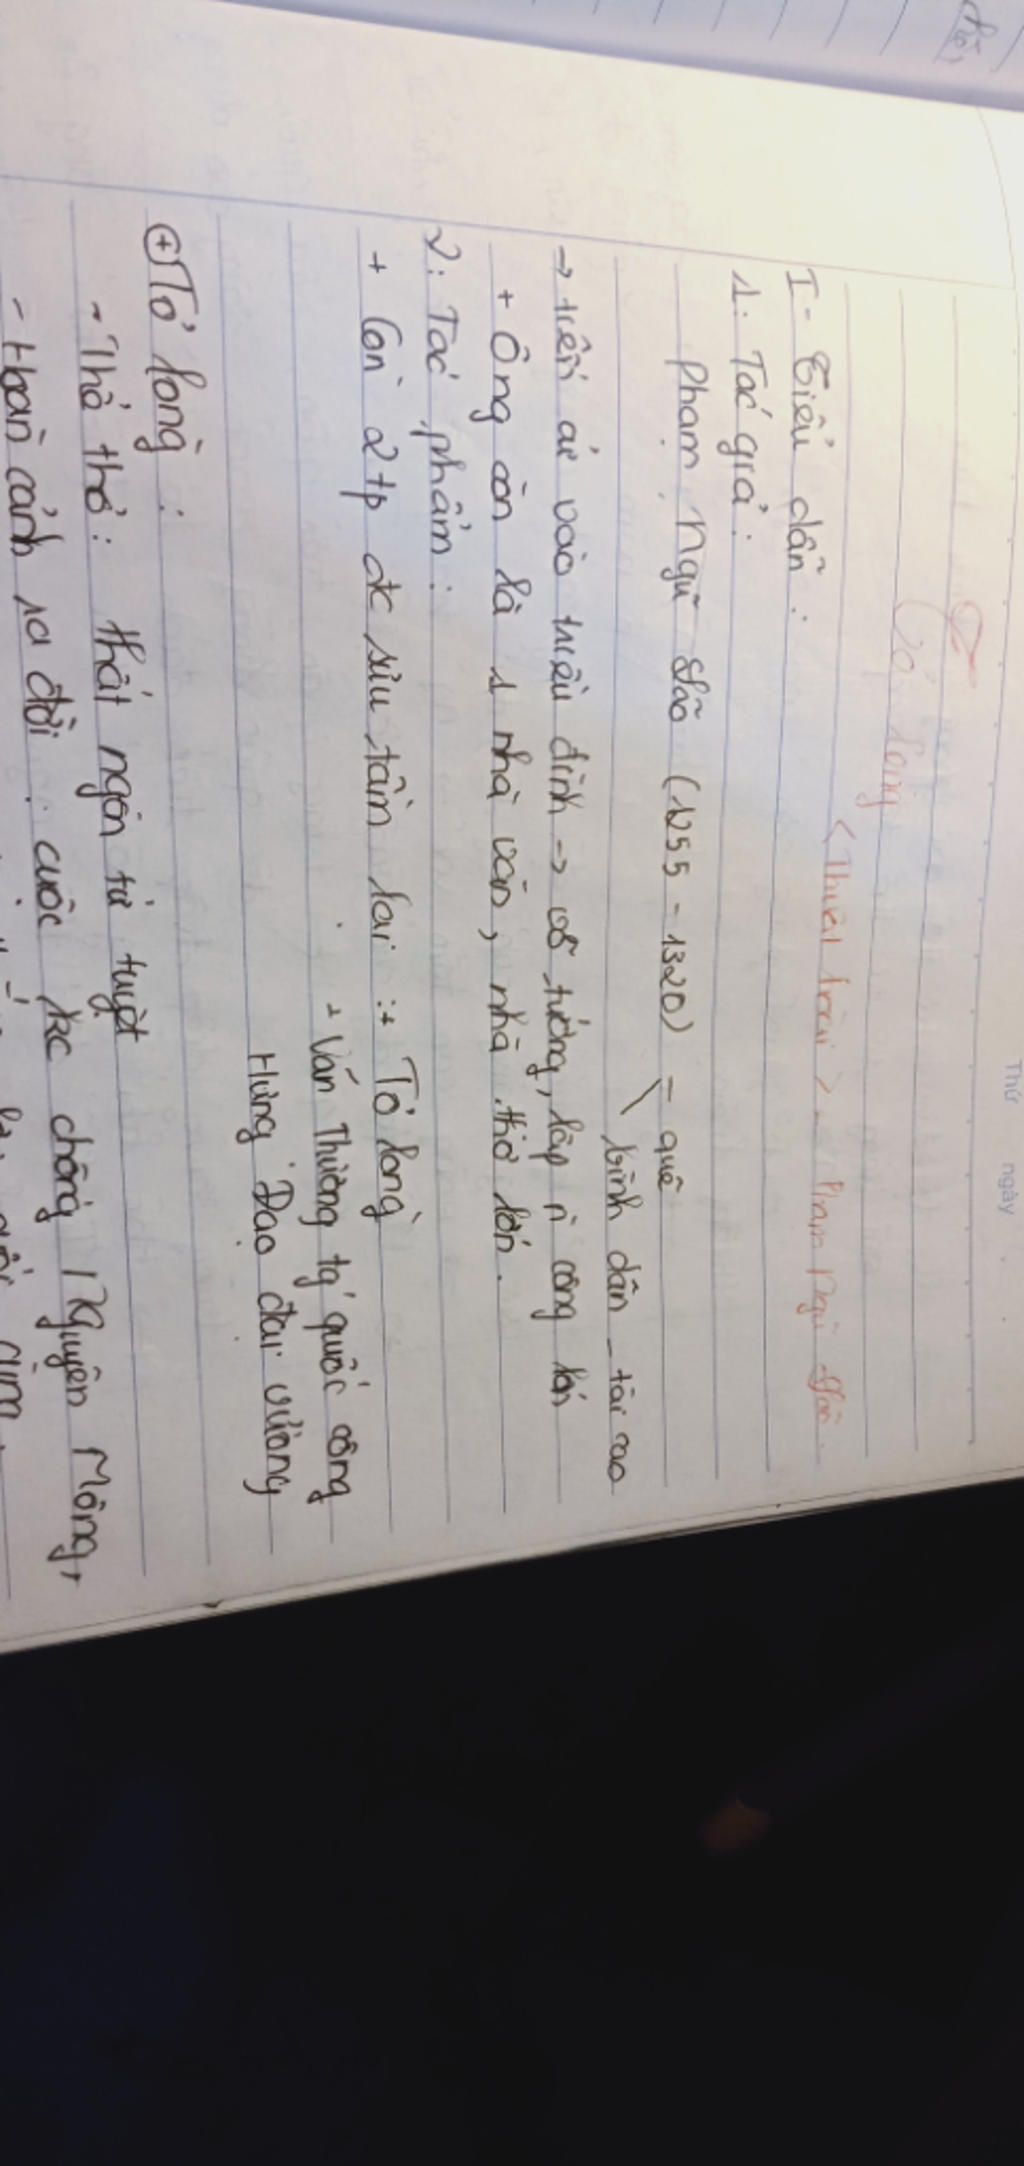 Thứ
ngày
Tỏ lòng
< Thuật hoài > - Phạm Ngũ Lão.
I- Tiểu dẫn:
1: Tác giả:
Phạm Ngũ Lão (1255 - 1320) - quê
bình dân - tài cao
→ tiến vào triều đình → võ tướng, lập n̄ công lớn
+ Ông còn là 1 nhà văn, nhà thơ lớn.
2: Tác phẩm:
+ Còn 2 tp đc sưu tầm lại: + Tỏ lòng
+ Vãn Thượng tg quốc công
Hưng Đạo đại vương
⊕ Tỏ lòng:
- Thể thơ: thất ngôn tứ tuyệt
- Hoàn cảnh ra đời: cuộc kc chống Nguyên Mông,